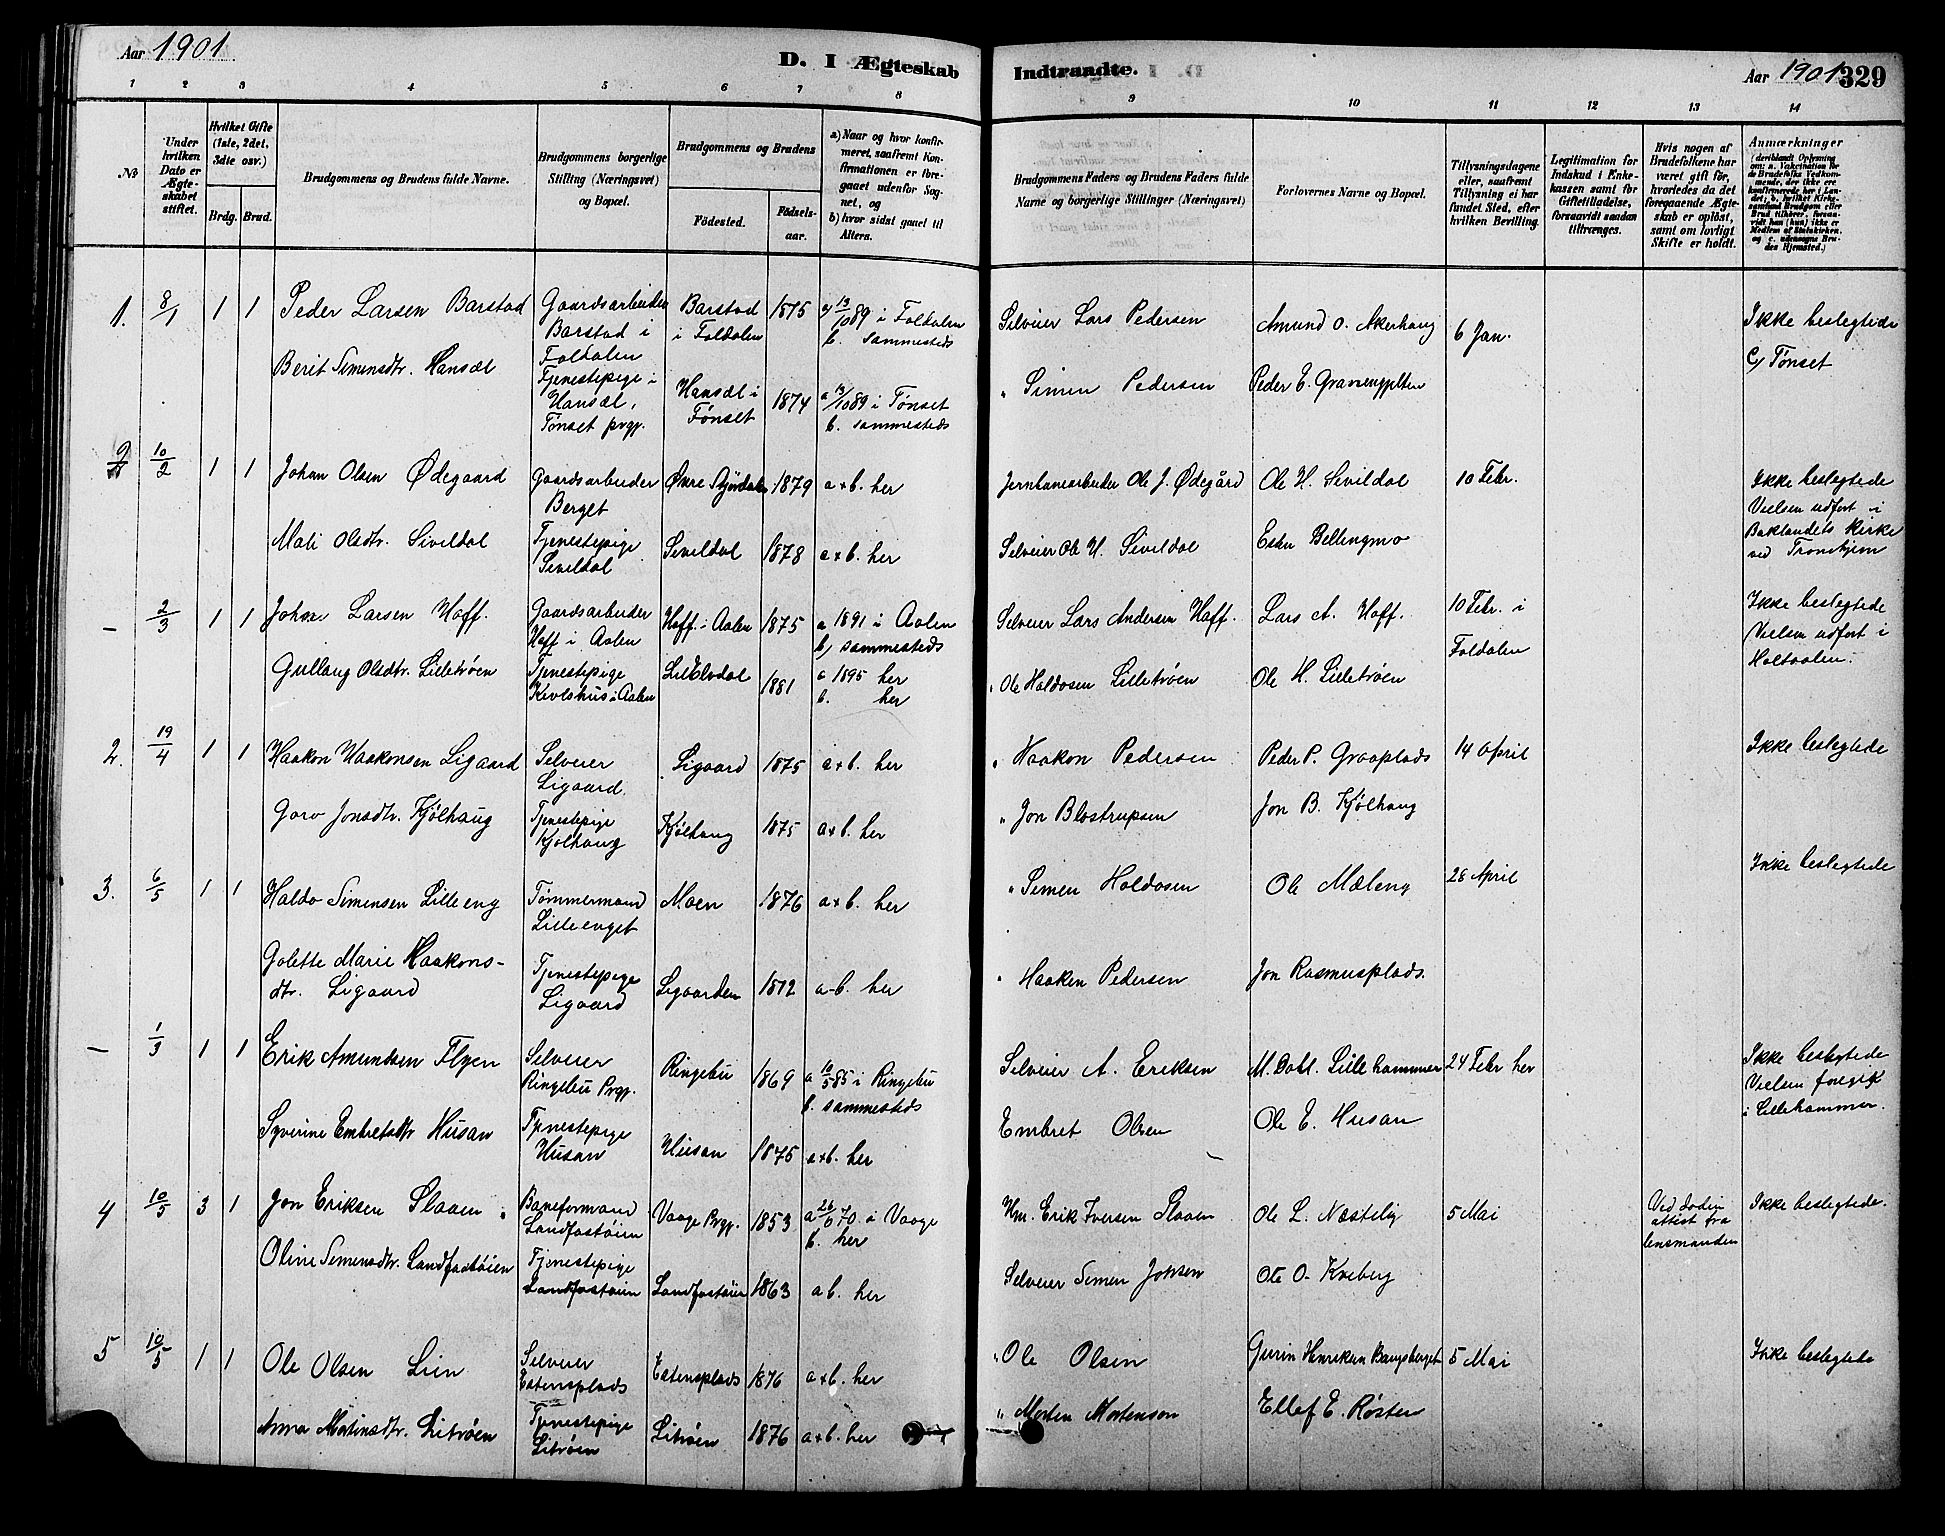 Aar 1901
D. I Ægteskab
Indtraadte.
Aar 1901
329
1 2 3 4 5 6 7 8
9 10 11 12 13 14
No
Under hvilken Dato er Ægteskabet stiftet.
Hvilket Gifte (1ste, 2det, 3die osv.)
Brdg. Brud.
Brudgommens og Brudens fulde Navne.
Brudgommens borgerlige Stilling (Næringsvei) og Bopæl.
Brudgommens og Brudens
Fødested.
Fødselsaar.
a) Naar og hvor konfirmeret, saafremt Konfirmationen er foregaaet udenfor Sognet, og
b) hvor sidst gaaet til Alters.
Brudgommens Faders og Brudens Faders fulde Navne og borgerlige Stillinger (Næringsvei)
Forlovernes Navne og Bopæl.
Tillysningsdagene eller, saafremt Tillysning ei har fundet Sted, efter hvilken Bevilling.
Legitimation for Indskud i Enkekassen samt for Giftetilladelse, forsaavidt saadan tiltrænges.
Hvis nogen af Brudefolkene har været gift før, hvorledes da det foregaaende Ægteskab er opløst, samt om lovligt Skifte er holdt.
Anmærkninger
1. 8/1 1 1 Peder Larsen Barstad Gaardsarbeider Barstad i Foldalen Barstad i Foldalen 1875 a) 13/10 89 i Foldalen b. sammesteds Selveier Lars Pedersen Amund O. Akerhaug 6 Jan. Ikke beslegtede c) Tønset
Berit Simensdtr. Hansæl Tjenestepige i Hansæl, Tønset prgj. Hansæl i Tønset 1874 a 13/10 89 i Tønset b. sammesteds " Simen Pedersen Peder E.
10/2 1 1 Johan Olsen Ødegaard Gaardsarbeider Berget Øvre Stjørdalen 1879 a+b. her Jernbanearbeider Ole J. Ødegård Ole H. Sivildal 10 Febr. Ikke beslegtede Vielsen udført i Baklandets Kirke ved Tronhjem
Mali Olsdtr. Sivildal Tjenestepige Sivildal Sivildal 1878 a+b. her Selveier Ole H. Sivildal Esten Bellingmo
– 2/3 1 1 Johan Larsen Hoff. Gaardsarbeider Hoff i Aalen Hoff i Aalen 1875 a 1891 i Aalen b) sammesteds Selveier Lars Andersen Hoff. Lars A. Hoff. 10 Febr. i Foldalen Ikke beslegtede Vielsen udført i Holtaalen.
Gullaug Olsdtr. Lilletrøen Tjenestepige i Aalen LilElvdal 1881 a 1895 her b. her " Ole Haldosen Lilletrøen Ole H. Lilletrøen
2. 19/4 1 1 Haakon Haakonsen Ligaard Selveier Ligaard. Ligaard 1875 a+b. her " Haakon Pedersen Peder P. Graaplads 14 April Ikke beslegtede
Goro Jonsdtr. Kjølhaug Tjenestepige Kjølhaug Kjølhaug 1875 a+b. her " Jon Bløstrupsen Jon B. Kjølhaug
3. 6/5 1 1 Haldo Simensen Lilleeng Tømmermand Lilleenget Moen 1876 a+b. her " Simen Haldosen Ole Mæleng 28 April Ikke beslegtede
Golette Marie Haakonsdtr. Ligaard Tjenestepige Ligaard Ligaarden 1872 a-b. her " Haaken Pedersen Jon Rasmusplads.
– 1/3 1 1 Erik Amundsen Flyen Selveier Ringebu Prgj. Ringebu 1869 a 10/5 85 i Ringebu b. sammesteds Selveier A. Eriksen M. Dahl. Lillehammer 24 Febr her Ikke beslegtede Vielsen foregik i Lillehammer.
Syverine Embretsdtr Husan Tjenestepige Husan Husan 1875 a+b. her Embret Olsen Ole E. Husan
4 10/5 3 1 Jon Eriksen Slaaen Baneformand Landfastøien Vaage Prgj. 1853 a 26/6 70 i Vaage b. her Hm. Erik Iversen Slaaen Ole L. Næstelig 5 Mai Ved Døden attest fra lensmanden Ikke beslegtede.
Oline Simensdtr. Landfastøien Tjenestepige Landfastøien Landfastøien 1863 a b. her Selveier Simen Johsen Ole O. Kveberg
5 10/5 1 1 Ole Olsen Lien Selveier Estensplads Estensplads 1876 a+b. her " Ole Olsen Gurin Henriksen 5 Mai Ikke beslegtede
Anna Mortensdtr. Litrøen Tjenestepige Litrøen Litrøen 1876 a+b. her " Morten Mortenson Ellef E. Røsten